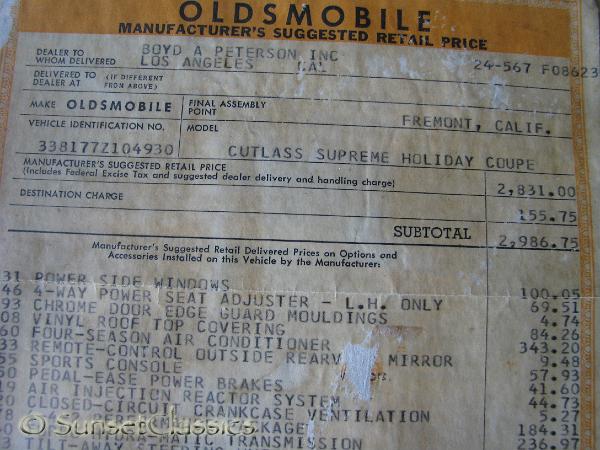 OLDSMOBILE
MANUFACTURER'S SUGGESTED RETAIL PRICE
DEALER TO WHOM DELIVERED
BOYD A PETERSON INC
LOS ANGELES CAL 24-567 F08623
DELIVERED TO DEALER AT (IF DIFFERENT FROM ABOVE)
MAKE OLDSMOBILE
FINAL ASSEMBLY POINT FREMONT, CALIF.
VEHICLE IDENTIFICATION NO. 338177Z104930
MODEL CUTLASS SUPREME HOLIDAY COUPE
MANUFACTURER'S SUGGESTED RETAIL PRICE
(Includes Federal Excise Tax and suggested dealer delivery and handling charge) 2,831.00
DESTINATION CHARGE 155.75
SUBTOTAL 2,986.75
Manufacturer's Suggested Retail Delivered Prices on Options and
Accessories Installed on this Vehicle by the Manufacturer:
31 POWER SIDE WINDOWS 100.05
46 4-WAY POWER SEAT ADJUSTER - L.H. ONLY 69.51
93 CHROME DOOR EDGE GUARD MOULDINGS 4.74
08 VINYL ROOF TOP COVERING 84.26
60 FOUR-SEASON AIR CONDITIONER 343.20
33 REMOTE-CONTROL OUTSIDE REARV MIRROR 9.48
55 SPORTS CONSOLE 57.93
50 PEDAL-EASE POWER BRAKES 41.60
19 AIR INJECTION REACTOR SYSTEM 44.73
20 CLOSED-CIRCUIT CRANKCASE VENTILATION 5.27
78 184.31
HYDRA-MATIC TRANSMISSION 236.97
3 TILT-AWAY STEERING
© SunsetClassics